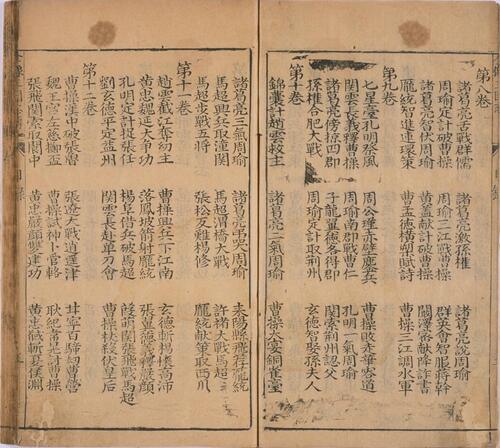 第八卷
諸葛亮舌戰群儒　諸葛亮激孫權　諸葛亮說周瑜
周瑜定計破曹操　周瑜三江戰曹操　群英會智服蔣幹
諸葛亮智伏周瑜　黃蓋獻計破曹操　闞澤密獻詐降書
龐統智進連環策　曹孟德橫槊賦詩　曹操三江調水軍
第九卷
七星臺孔明祭風　周公瑾赤壁鏖兵　曹操敗走華容道
關雲長義釋曹操　周瑜南郡戰曹仁　孔明一氣周瑜
諸葛亮傍掠四郡　子龍翼德各得郡　關索荆州認父
孫權合肥大戰　周瑜定計取荆州　玄德智娶孫夫人
第十卷
錦囊計趙雲救主　諸葛亮二氣周瑜　曹操大宴銅雀臺
諸葛亮三氣周瑜　諸葛亮吊哭周瑜　耒陽縣飛薦龐統
馬超興兵取潼關　馬超渭橋大戰　許褚大戰馬超
馬超步戰五將　張松反難楊修　龐統獻策取西川
第十一卷
趙雲截江奪幼主　曹操興兵下江南　玄德斬楊懷高沛
黃忠魏延大爭功　落鳳坡箭射龐統　張翼德義釋嚴顏
孔明定計捉張任　楊阜借兵破馬超　葭萌關張飛戰馬超
劉玄德平定益州　關雲長赴單刀會　曹操杖殺伏皇后
第十二卷
曹操漢中破張魯　張遼大戰逍遙津　甘寧百騎劫曹營
魏王宮左慈擲盃　曹操試神卜管輅　耿紀韋晃討曹操
張飛關索取閬中　黃忠嚴顏雙建功　黃忠馘斬夏侯淵